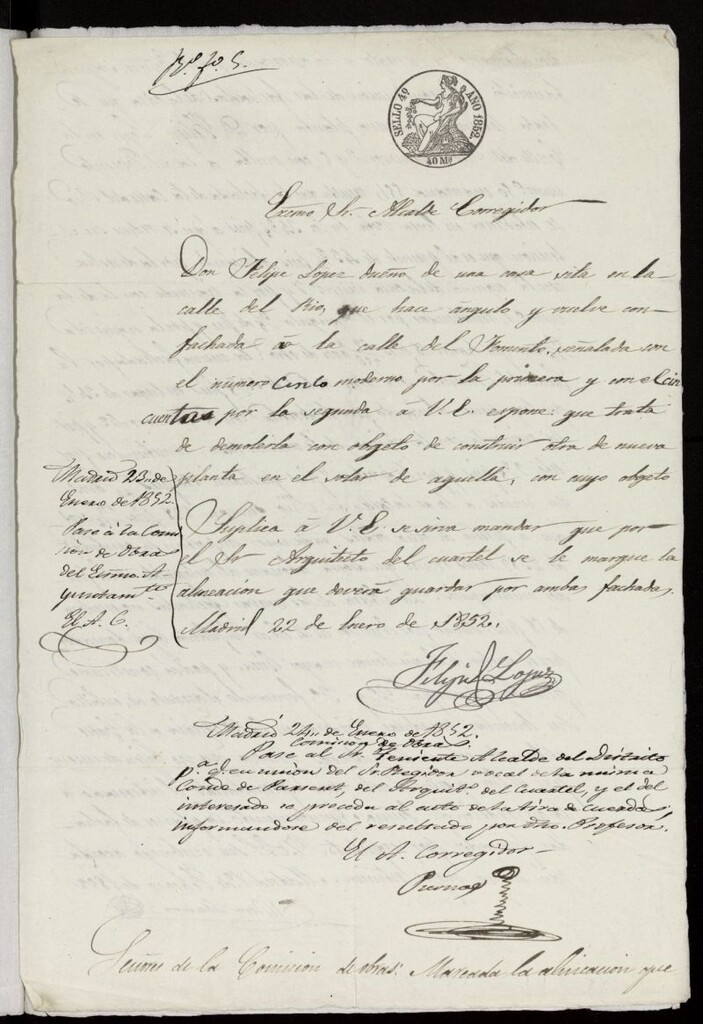 SELLO 4º AÑO 1852.
40 Ms
Exmo Sr. Alcalde Corregidor
Don Felipe Lopez dueño de una casa sita en la
calle del Rio, que hace ángulo y vuelve con
fachada á la calle del Fomento, señalada con
el número cinco moderno por la primera y con el cin
cuenta por la segunda á V.E. espone: que trata
de demolerla con objeto de construir otra de nueva
planta en el solar de aquella, con cuyo objeto
Suplica á V.E. se sirva mandar que por
el Sr Arquitecto del cuartel se le marque la
alineacion que deverá guardar por ambas fachadas.
Madrid 22 de Enero de 1852.
Felipe Lopez
Madrid 23 de
Enero de 1852.
Pase á la Comi
sion de Obras
del Exmo. A-
yuntamto
El A. C.
Madrid 24 de Enero de 1852.
Comision de Obras
Pase al Sr. Teniente Alcalde del Distrito
pa. q. en union del Sr. Regidor vocal de la misma
Conde de Parsent, del Arquitto. del Cuartel, y el del
interesado se proceda al acto de la tira de cuerdas,
informandose del resultado por dho. Profesor.
El A. Corregidor
Señores de la Comision de obras: Marcada la alineacion que